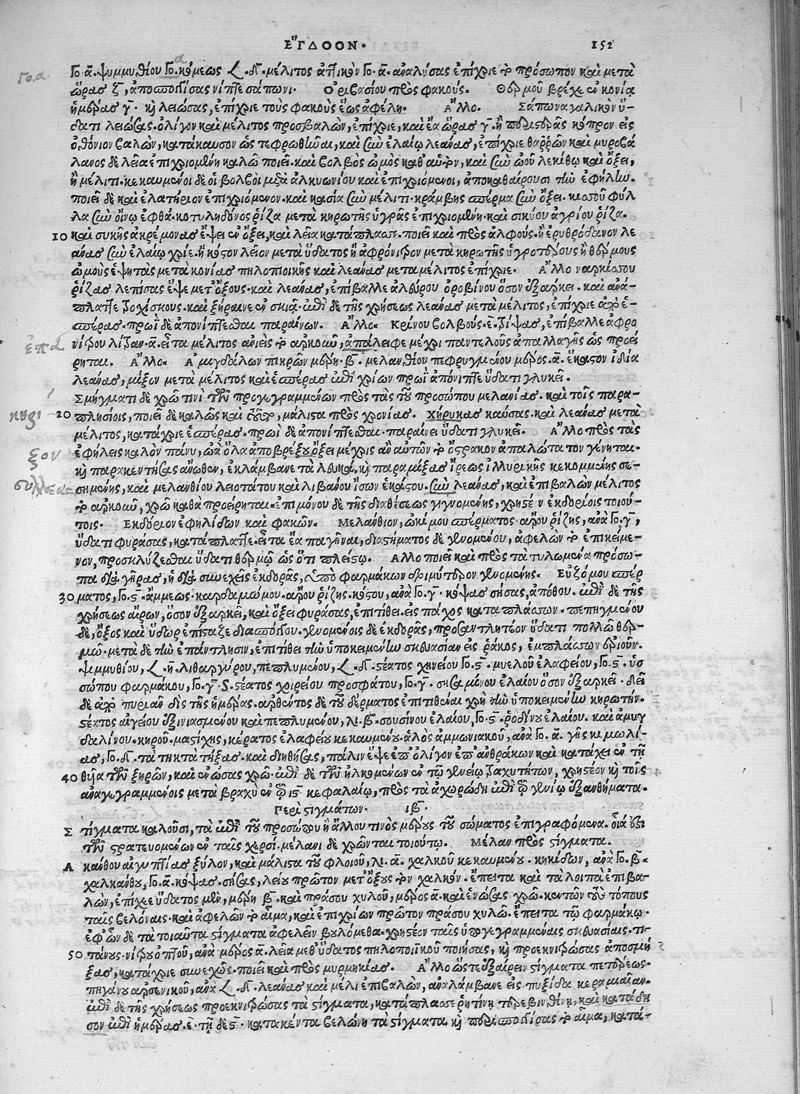 ΕΓΔΟΟΝ. 152
Γο.α. ψιμμυθίου Γο. κόμεως 𐅻.δ. μέλιτος ἀττικοῦ Γο.α. ἀναλύσας ἐπίχριε τὸ πρόσωπον καὶ μετὰ
ὥρας ζ, ἀποσπογγίσας νίπτε σάπωνι. Ὀριβασίου πρὸς φακούς. Θέρμου βρέχε ἐν κονίᾳ
ἡμέρας γ. καὶ λειώσας, ἐπίχριε τοὺς φακοὺς ἕως ἀφέλῃ. Ἄλλο. Σάπωνα γαλικὸν ὕ-
δατι λειώσας. ὀλίγον καὶ μέλιτος προσβαλὼν, ἐπίχριε, καὶ ἔα ὥρας γ. ἢ κύπρον εἰς
ὀθόνιον βαλὼν, κατάκαυσον ὡς τεφρωθῆναι, καὶ σὺν ἐλαίῳ λεάνας, ἐπίχριε θαρρῶν καὶ μυροβά
λανος δὲ λεῖα ἐπιχριομένη καλῶς ποιεῖ. καὶ βολβὸς ὠμὸς καθ' αὑτὸν, καὶ σὺν ὠοῦ λεκίθῳ καὶ ὄξει,
ἢ μέλιτι. κεκαυμένοι δὲ οἱ βολβοὶ μετὰ ἀλκυονίου καὶ ἐπιχριόμενοι, ἀποκαθαίρουσι τὴν ἔφηλιν.
ποιεῖ δὲ καὶ ἐλατήριον ἐπιχριόμενον. καὶ κασία σὺν μέλιτι. κράμβης σπέρμα σὺν ὄξει. κισσοῦ φύλ
λα σὺν οἴνῳ ἑφθά. κοτυληδόνος ῥίζα μετὰ κηρωτῆς ὑγρᾶς ἐπιχριομένη. καὶ σικύου ἀγρίου ῥίζα.
10 καὶ συκῆς ἀκρέμονας ἕψει ἐν ὄξει, καὶ λεῖα κατάπλασσε. ποιεῖ καὶ πρὸς ἀλφούς. ἢ ἐρυθρόδανον λε
άνας σὺν ἐλαίῳ χρῖε. ἢ κόστον λεῖον μετὰ ὕδατος ἢ ἀφρόνιτρον μετὰ κηρωτῆς ἢ θέρμους
ὠμοὺς ἑψητὰς μετὰ κονίας πηλοποιικῆς καὶ λεάνας μετὰ μέλιτος ἐπίχριε. Ἄλλο ναρκίσσου
ῥίζας λεπίσας ἕψε μετ' ὄξους. καὶ λεάνας, ἐπίβαλλε ἀλεύρου ὀροβίνου ὅσον ἐξαρκεῖ. καὶ ἀνά-
πλασσε τροχίσκους. καὶ ξήραινε ἐν σκιᾷ. ἐπὶ δὲ τῆς χρήσεως λεάνας μετὰ μέλιτος, ἐπίχριε ἀφ' ἑ-
σπέρας. πρωῒ δὲ ἀπονίπτεσθαι παραίνων. Ἄλλο. Κρίνου βολβοὺς ε. τρίψας, ἐπίβαλλε ἀφρο
νίτρου λίτραν.α. εἶτα μέλιτος ἀνιεὶς τὸ ἀρκοῦν, ἀπάλειφε μέχρι παντελοῦς ἀπαλλαγῆς ὡς προεί
ρηται. Ἄλλο. Ἀμυγδάλων πικρῶν μέρη.β. μελανθίου πεφρυγμένου μέρος.α. ἕκαστον ἰδίᾳ
λεάνας, μίξον μετὰ μέλιτος καὶ ἑσπέρας ἐπιχρίων πρωῒ ἀπόνιπτε ὕδατι γλυκεῖ.
Σμήγματι δὲ χρῶ τινὶ τῶν προγεγραμμένων πρὸς τὰς τοῦ προσώπου μελανίας. καὶ τοῖς παρα-
20 πλησίοις, ποιεῖ δὲ καλῶς καὶ μάλιστα πρὸς χρονίας. κήρυκας καύσας. καὶ λεάνας μετὰ
μέλιτος, κατάχριε ἑσπέρας. πρωῒ δὲ ἀπονίπτεσθαι παραίνει ὕδατι γλυκεῖ. Ἄλλο πρὸς τὰς
ἐφήλεις καλὸν πάνυ, ὠὰ ὅλα ἀπόβρεξον ὄξει μέχρις ἂν αὐτῶν τὸ ὄστρακον ἁπαλώτατον γένηται.
καὶ παρακεντήσας ἄνωθεν, ἐκλάμβανε τὰ λευκά, καὶ παραμίξας ἴρεως ἰλλυρικῆς κεκομμένης σε-
σησμένης, καὶ μελανθίου λειοτάτου καὶ λιβάνου ἴσον ἑκάστου. σὺν λεάνας, καὶ ἐπιβαλὼν μέλιτος
τὸ ἀρκοῦν, χρῶ καθὰ προείρηται. ἐπιμόνου δὲ τῆς διαθέσεως γιγνομένης, χρηστέον ἐκδορίοις τοιού-
τοις. Ἐκδόριον ἐφηλίδων καὶ φακῶν. Μελάνθιον, ὠκίμου σπέρματος ἀρου ῥίζης, ἀνὰ Γο.γ,
ὕδατι φυράσας, κατάπλασσε. εἶτα ἔα παγῆναι, διαστήματος δὲ γενομένου, ἀφελὼν τὸ ἐπικείμε-
νον, προσκλύζεσθαι ὕδατι θερμῷ ὡς ὅτι πλείστῳ. Ἄλλο ποιεῖ καὶ πρὸς τὰ τετυλωμένα πρόσω-
πα διὰ γῆρας, ἢ διὰ συνεχεῖς ἐκδορὰς, ὑπὸ φαρμάκων δριμυτέρων γενομένης. Εὐζώμου σπέρ
30 ματος, Γο.ς. ἄμμεως. καρδαμώμου. ἄρου ῥίζης. κόστου, ἀνὰ Γο.γ. κόψας σήσας, ἀπόθου. ἐπὶ δὲ τῆς
χρήσεως αἴρων, ὅσον ἐξαρκεῖ, καὶ ὄξει φυράσας, ἐπιτίθει. εἰς πάχος καταπλάσσων. πεπηγμένου
δὲ, ὄξος καὶ ὕδωρ ἐπίσταζε διασπόγγου. γενομένοις δὲ ἐκδορᾶς, προσαντλητέον ὕδατι πολλῷ θερ-
μῷ. μετὰ δὲ τὴν ἐπάντλησιν, ἐπιτίθει τὴν ὑποκειμένην σκευασίαν εἰς ῥάκος, ἐμπλάσσων ὀθόνιον.
Ψιμμυθίου, 𐅻.η. λιθαργύρου, πεπλυμένου, 𐅻.δ. στέατος χηνείου Γο.ς. μυελοῦ ἐλαφείου, Γο.ς. ὑσ
σώπου φαρμάκου, Γο.γ.ς. στέατος χοιρείου προσφάτου, Γο.γ. σησαμίνου ἐλαίου ὅσον ἐξαρκεῖ. δεῖ
δὲ ἀπὸ πυριῶν δὶς τῆς ἡμέρας. ἀρθέντος δὲ τοῦ δέρματος ἐπιτίθεναι χρὴ τὴν ὑποκειμένην κηρωτήν.
Στέατος αἰγείου ἐξινιασμένου καὶ πεπλυμένου, λι.β. σουσίνου ἐλαίου, Γο.ς. ῥοδίνου ἐλαίου. καὶ ἀμυγ
δαλίνου. κηροῦ. μαστίχης, κέρατος ἐλαφείου κεκαυμένου. ἁλὸς ἀμμωνιακοῦ, ἀνὰ Γο.α. γῆς κιμωλί-
ας, Γο.δ. τὰ τηκτὰ τῆξας. καὶ διηθήσας, πάλιν ἕψε ἐπ' ὀλίγον ἐπ' ἀνθράκων καὶ κατάχει ἐν τῇ
40 θυίᾳ τῶν ξηρῶν, καὶ ἑνώσας χρῶ. ἐπὶ δὲ τῶν ἡλκομένων ἐν τῷ γενείῳ τραχυτήτων, χρηστέον καὶ τοῖς
ἀναγεγραμμένοις μετὰ βραχὺ ἐν τῷ ις κεφαλαίῳ, πρὸς τὰ ἀχωρώδη ἐπὶ τῷ γενείῳ ἐξανθήματα.
Περὶ στιγμάτων. ιβ.
Στίγματα καλοῦσι, τὰ ἐπὶ τοῦ προσώπου ἢ ἄλλου τινὸς μέρους τοῦ σώματος ἐπιγραφόμενα. οἷά ἐστι
τῶν στρατευομένων ἐν ταῖς χερσί. μέλανι δὲ χρῶνται τοιούτῳ. Μέλαν πρὸς στίγματα.
Ἀκάνθου αἰγυπτίας ξύλου, καὶ μάλιστα τοῦ φλοιοῦ, λι.α. χαλκοῦ κεκαυμένου. κηκίδων, ἀνὰ Γο.β.
χαλκάνθου, Γο.α. κόψας. σήσας, λείου πρῶτον μετ' ὄξους τὸν χαλκόν. ἔπειτα καὶ τὰ λοιπὰ ἐπιβα-
λὼν, ἐπίχεε ὕδατος μὲν, μέρη β. καὶ πράσου χυλοῦ, μέρος α. καὶ ἑνώσας χρῶ. κεντῶν τοὺς τόπους
ταῖς βελόναις. καὶ ἀφελὼν τὸ αἷμα, καὶ ἐπιχρίων πρῶτον πράσου χυλῷ. ἔπειτα τῷ φαρμάκῳ.
ἐφ' ὧν δὲ τὰ τοιαῦτα στίγματα ἀφελεῖν βουλόμεθα. χρηστέον ταῖς ὑπογεγραμμέναις σκευασίαις. τι-
50 τάνου. νίτρου πηλοῦ, ἀνὰ μέρος α. λεῖα μεθ' ὕδατος πηλοποιικοῦ ποιήσας, καὶ προεκνιτρώσας ἀποσμή
ξας, κατάχριε συνεχῶς. ποιεῖ καὶ πρὸς μυρμηκίας. Ἄλλο ὥστε ἐξαίρειν στίγματα πεπέρεως.
πηγάνου ἀρσενικοῦ, ἀνὰ 𐅻.δ. λεάνας καὶ μέλι ἐπιβαλὼν, ἀναλάμβανε εἰς πυξίδα κεραμιαίαν.
ἐπὶ δὲ τῆς χρήσεως προεκνιτρώσας τὰ στίγματα, κατάπλασσε ῥητίνῃ τερεβινθίνῃ, καὶ κατάδη
σον ἐπὶ ἡμέρας.ε. τῇ δὲ ς. κατακέντα βελόνῃ τὰ στίγματα καὶ περισπογγίσας τὸ αἷμα, κατά-